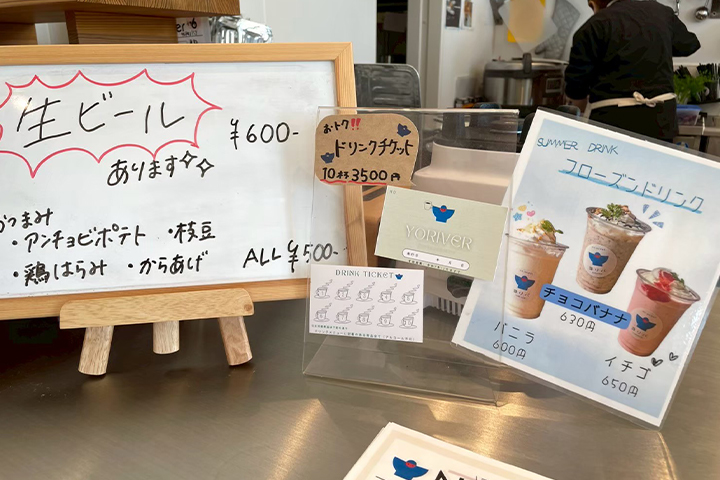 生ビール
¥600-
あります
おつまみ
・アンチョビポテト ・枝豆
・鶏はらみ ・からあげ
ALL ¥500-
おトク!!
ドリンクチケット
10杯 3500円
YORiVeR
DRINK TICKET
SUMMER DRINK
フローズンドリンク
チョコバナナ
630円
バニラ
600円
イチゴ
650円